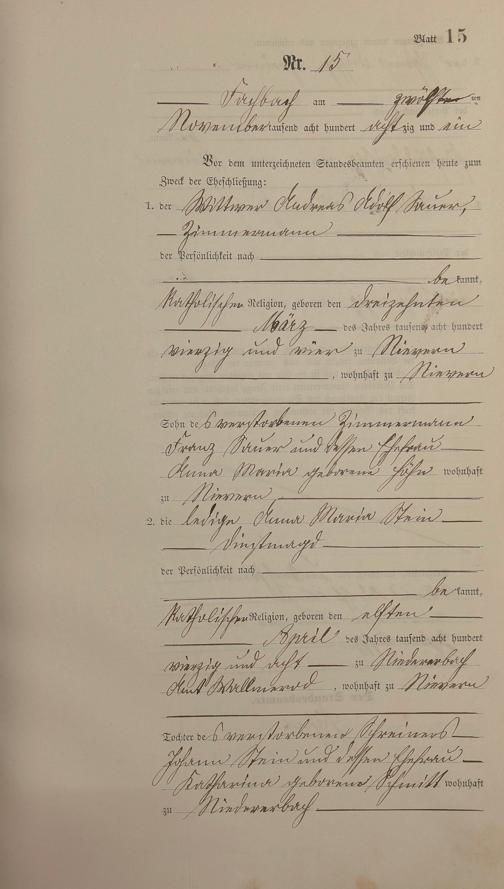 Blatt 15
Nr. 15
Fachbach am zwölften ten
November tausend acht hundert achtzig und ein
Vor dem unterzeichneten Standesbeamten erschienen heute zum
Zweck der Eheschließung:
1. der Wittwer Andreas Adolf Sauer,
Zimmermann
der Persönlichkeit nach
bekannt,
Katholischer Religion, geboren den dreizehnten
März des Jahres tausend acht hundert
vierzig und vier zu Nievern
, wohnhaft zu Nievern
Sohn des verstorbenen Zimmermann
Franz Sauer und dessen Ehefrau
Anna Maria geborene Höhn wohnhaft
zu Nievern
2. die ledige Anna Maria Stein
Dinstmagd
der Persönlichkeit nach
bekannt,
Katholischer Religion, geboren den elften
April des Jahres tausend acht hundert
vierzig und acht zu Niedererbach
Amt Wallmerod, wohnhaft zu Nievern
Tochter des verstorbenen Schreiners
Johann Stein und dessen Ehefrau
Katharina geborene Schmitt wohnhaft
zu Niedererbach